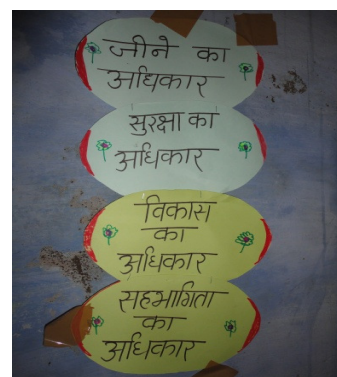 जीने का
अधिकार
सुरक्षा का
अधिकार
विकास
का
अधिकार
सहभागिता
का
अधिकार